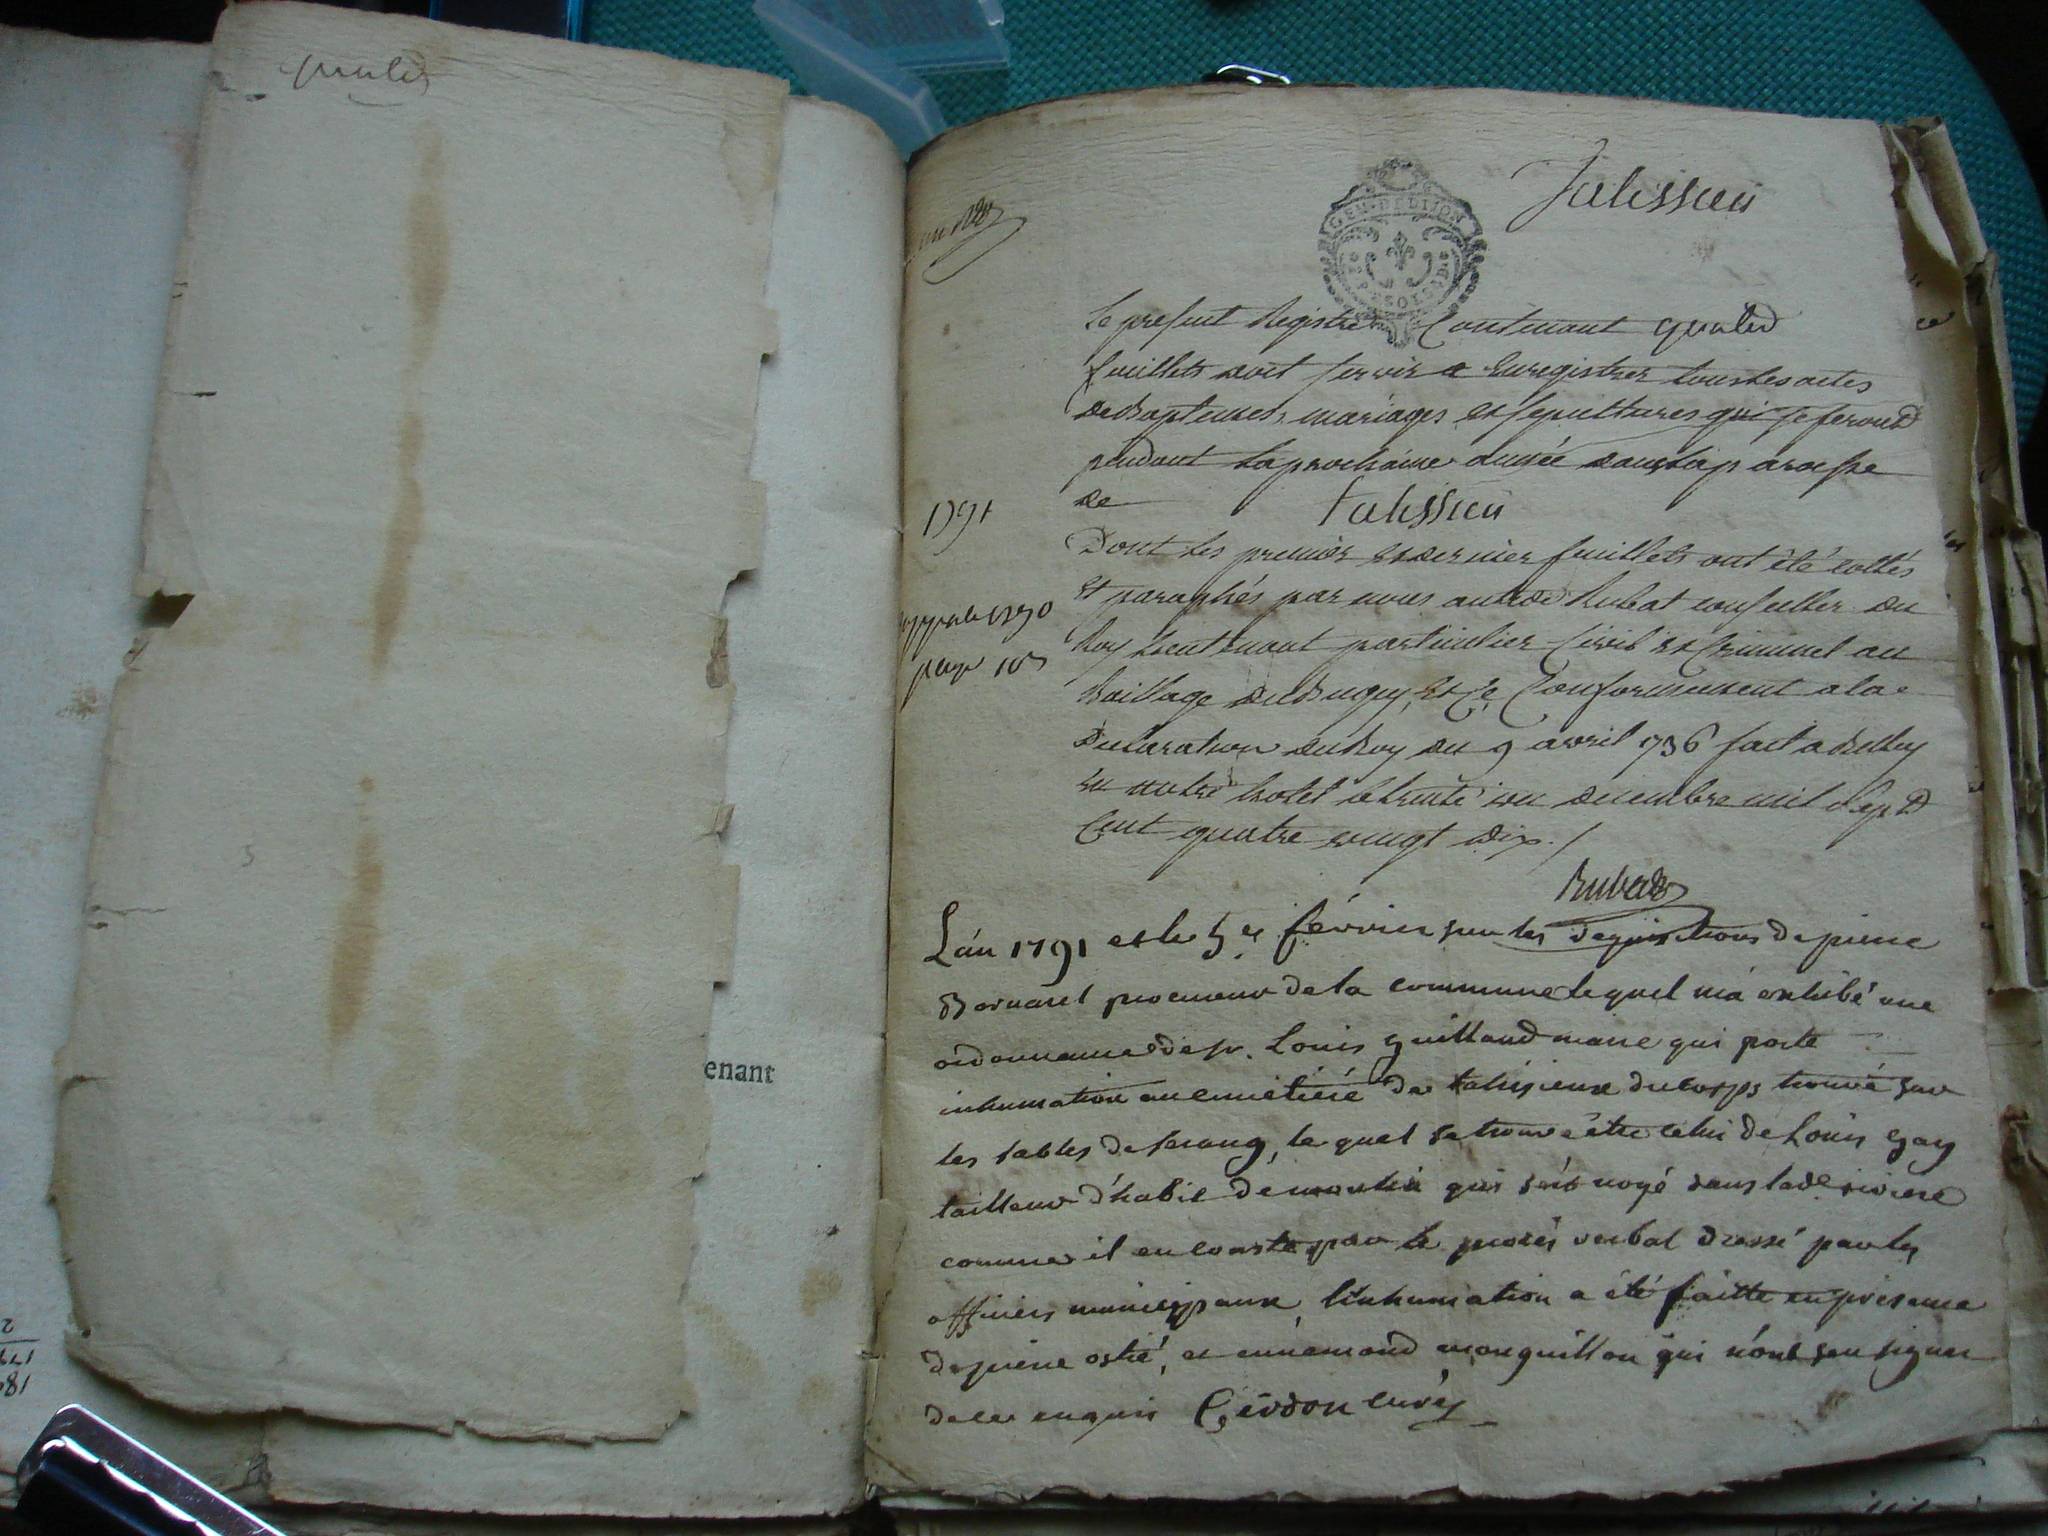 quatre
enant
Talissieu
GEN. DE DIJON
Le present Registre Contenant quatre
feuillets doit servir a Enregistrer tous les actes
de Baptemes, mariages et sepultures qui se feront
pendant la prochaine année dans la paroisse
de
Talissieu
1791
Dont les premier et dernier feuillets ont été cottés
et paraphés par nous Rubat conseiller du
Roy Lieutenant particulier Civil et Criminel au
Bailliage du Bugey, et Ce Conformement a la
Declaration du Roy du 9 avril 1736 fait a Belley
en notre hotel le trente un decembre mil sept
Cent quatre vingt dix ./
1790
page
Rubat
L'an 1791 et le 5 er février sur les requisitions de pierre
Bornarel procureur de la commune lequel m'a exhibé une
ordonnance de sr. Louis guilland maire qui porte
inhumation au cimetiére de talissieux du corps trouvé sur
les sables de , le quel se trouve être celui de Louis gay
tailleur d'habit de qui s'est noyé dans lade riviere
comme il en conste par le procés verbal dressé par les
officiers municipaux, l'inhumation a été faitte en présence
de pierre ostié, et ennémond monguillon qui n'ont seu signer
de ce enquis Gerdon curé